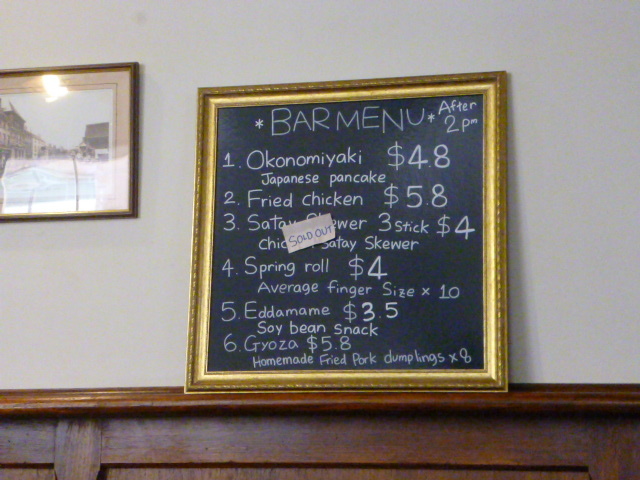 * BAR MENU * After 2pm
1. Okonomiyaki $4.8
Japanese pancake
2. Fried chicken $5.8
3. Satay Skewer 3 Stick $4
SOLD OUT
chicken Satay Skewer
4. Spring roll $4
Average finger Size x 10
5. Eddamame $3.5
Soy bean snack
6. Gyoza $5.8
Homemade Fried Pork dumplings x 8